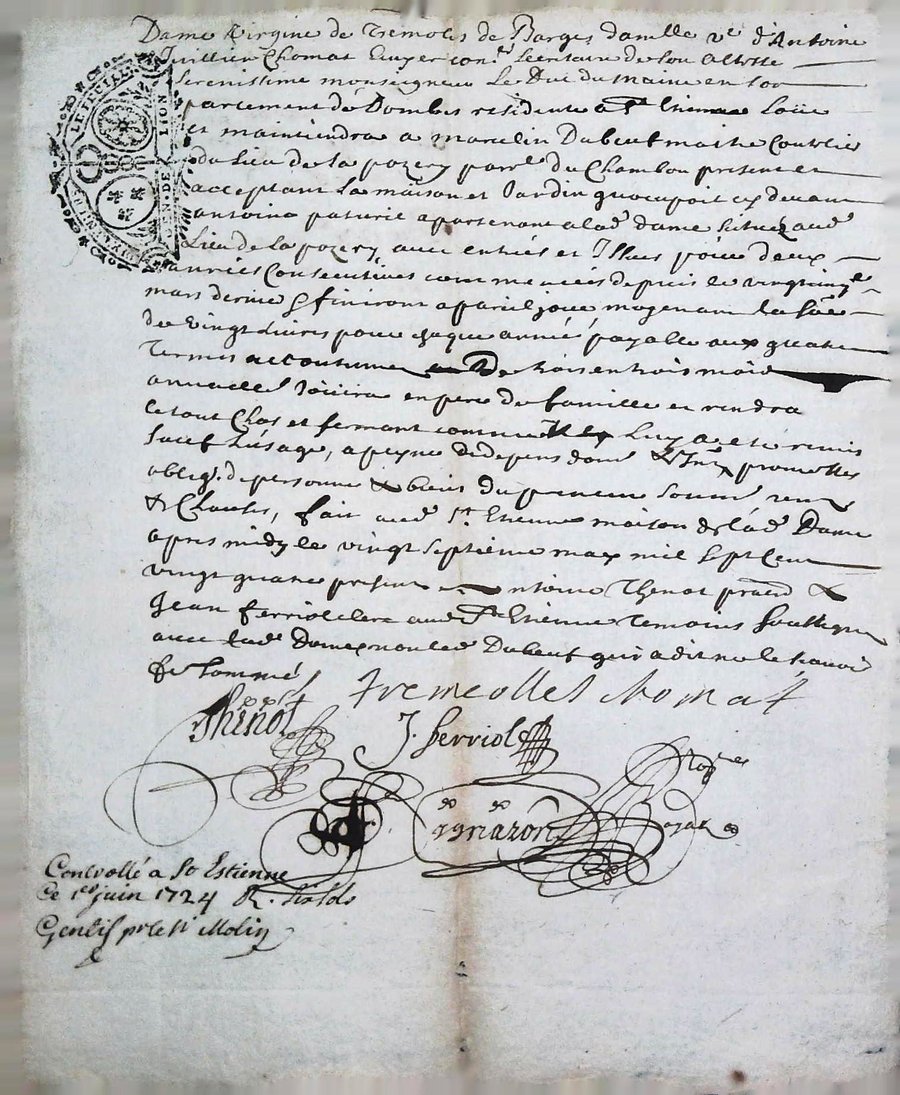 Dame Virgine de Tremolis de Barges damlle ve d'Antoine
Juillien Chomat Escuyer conr Secretaire de Son Altesse
Serenissime monseigneur Le Duc du Maine en son
parlement de Dombes residente a St Etienne Loüe
et maintiendra a marcelin Dubeuf maitre
du Lieu de la pozery parse du Chambon present et
acceptant La maison et Jardin quocupoit cy devant
antoine paturie apartenant a lade dame Situez aud
Lieu de la pozery avec entrées et Issues pour deux
années Consecutives commencées depuis le vingtcinqe
mars dernier & finiront a pareil jour moyenant la So͞e
de vingt livres pour chaque année, payable aux quatre
Termes accoutumes de trois en trois mois
annuelle Joüira en pere de famille et rendra
le tout Clos et fermant comme Luy a esté remis
Sauf Lusage, a peyne de depens dom & Inst promettes
oblig. de personne & biens du preneur Soum renn
& Clauses, fait aud St Etienne maison de lade Dame
apres midy le vingt septieme may mil Sept Cent
vingt quatre present Antoine Thinot pratd &
Jean ferriol clerc aud St Etienne temoins Soussignes
avec lade Dame non led Dubeuf qui a dit ne le scavoir
de Sommé
Tremeolles Chomat
Thinot
J. ferriol
Controllé a St Estienne
Ce 1er juin 1724 R.
Gentil pr le Sr Molin